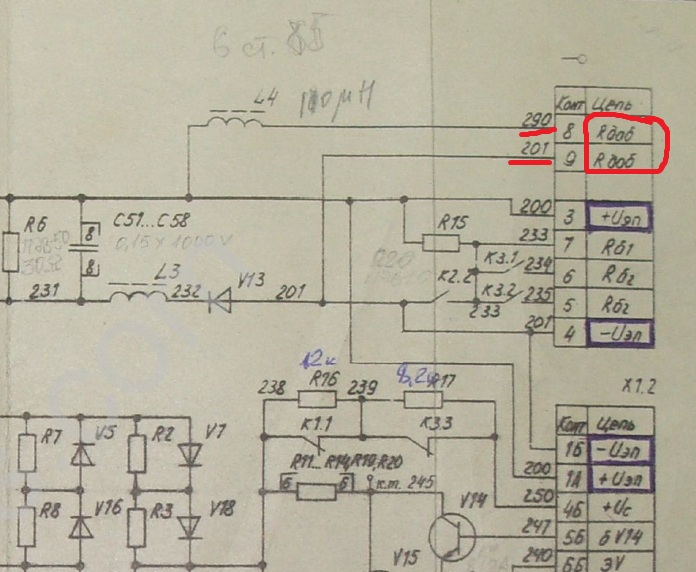 6 ст.
L4
Конт Цепь
290 8 Rдоб
201 9 Rдоб
200 3 +Uэп
R6 С51...С58 R15 233 7 Rб1
8 0,15 x 1000 V K3.1 234 6 Rб2
8 L3 V13 K2.2 K3.2 235 5 Rб2
231 232 201 233 201 4 -Uэп
12к 8,2к X1.2
238 R16 239 R17 Конт Цепь
R7 V5 R2 V7 K1.1 K3.3 1Б -Uэп
R11...R14,R19,R20 200 1А +Uэп
6 6 к.т. 245 250 4Б +Uс
R8 V16 R3 V18 V14 247 5Б б V14
V15 240 6Б ЭV